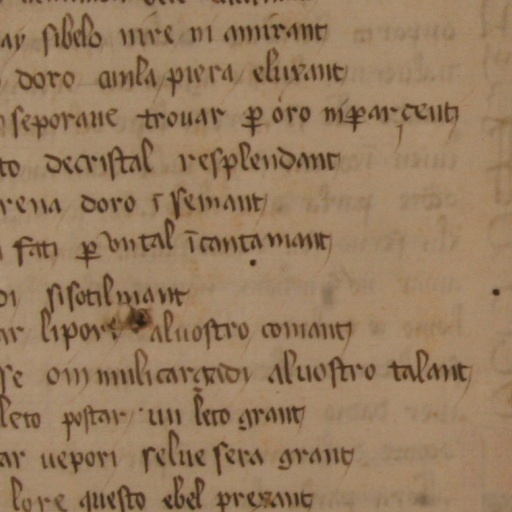 ay sibelo uire ni amirant
doro cinla piera elusant
seporaue trouar ꝑ oro niꝑargenti
to decristal resplendant
rena doro ī semant
fati ꝑ untal īcantamant
di sisotilmant
ar lipore aluostro comant
se om mulicargadi aluostro talant
leto postar un leto grant
ar uepori selue sera grant
lore questo ebel presant